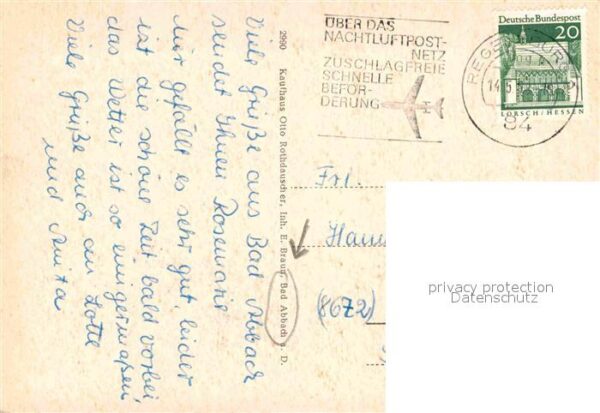 Viele Grüße aus Bad Abbach
sendet Ihnen Rosemarie
Mir gefällt es sehr gut, leider
ist die schöne Zeit bald vorbei
das Wetter ist so einigermaßen
Viele Grüße auch an Lotte
und Anita
2990 Kaufhaus Otto Rothdauscher, Inh. E. Braun, Bad Abbach a. D.
ÜBER DAS
NACHTLUFTPOST-
NETZ
ZUSCHLAGFREIE
SCHNELLE
BEFÖR-
DERUNG
Deutsche Bundespost
20
LORSCH/HESSEN
REGENSBURG
14.5
84
Frl.
(8672)
privacy protection
Datenschutz